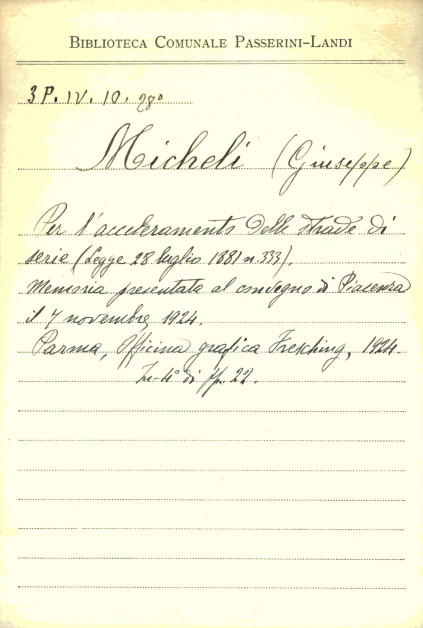 BIBLIOTECA COMUNALE PASSERINI-LANDI
3 P. IV. 10. 28º
Micheli (Giuseppe)
Per l'acceleramento delle strade di
serie (Legge 28 luglio 1881 n. 333).
Memoria presentata al convegno di Piacenza
il 7 novembre, 1924.
Parma, Officina grafica Fresching, 1924.
In-4º di pp. 22.